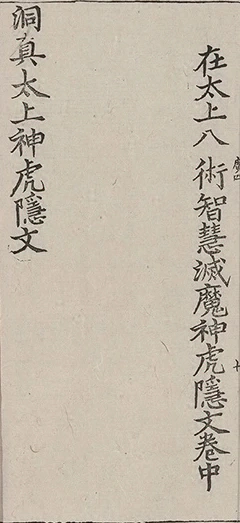 在太上八術智慧滅魔神虎隱文卷中
洞真太上神虎隱文